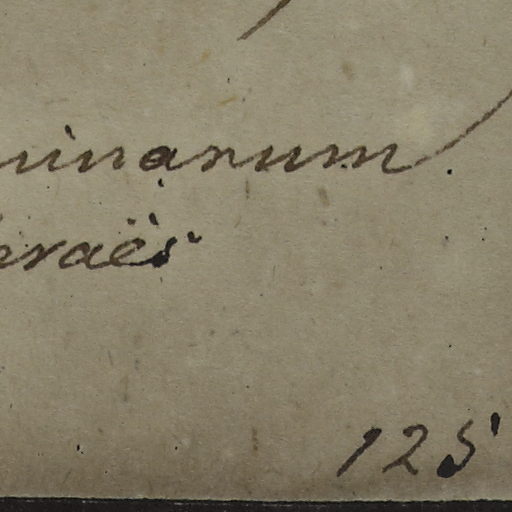 uinarum
eraës
125